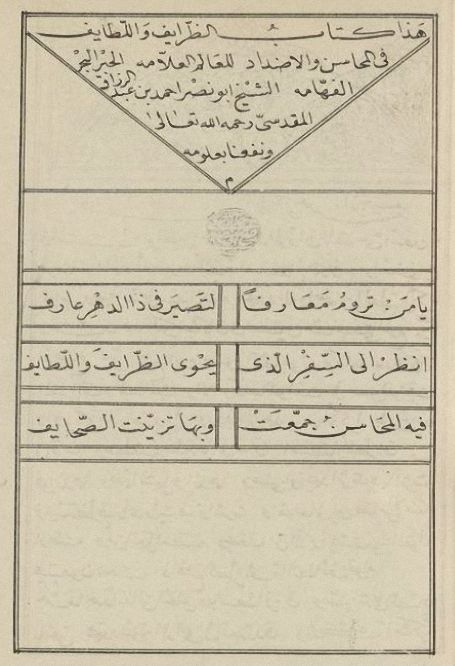 هَذَا كتابُ الظرايف وَاللّطايف
في المحاسن والاضداد للعالم العلاّمه الحَبْر البَحْر
الفهّامه الشيْخ ابو نصْر احمد بن عبد الرزاق
المقدسيّ رحمه الله تعَالى
ونفعنا بعلومه
م
يا مَنْ ترومُ مَعَارفاً لتَصيرَ في ذا الدهْرِ عارف
انظرْ الى السِّفْرِ الّذى يَحْوى الظّرايفَ وَاللّطايف
فيه المحَاسنُ جمّعَتْ وبهَا تزيّنت الصّحايف